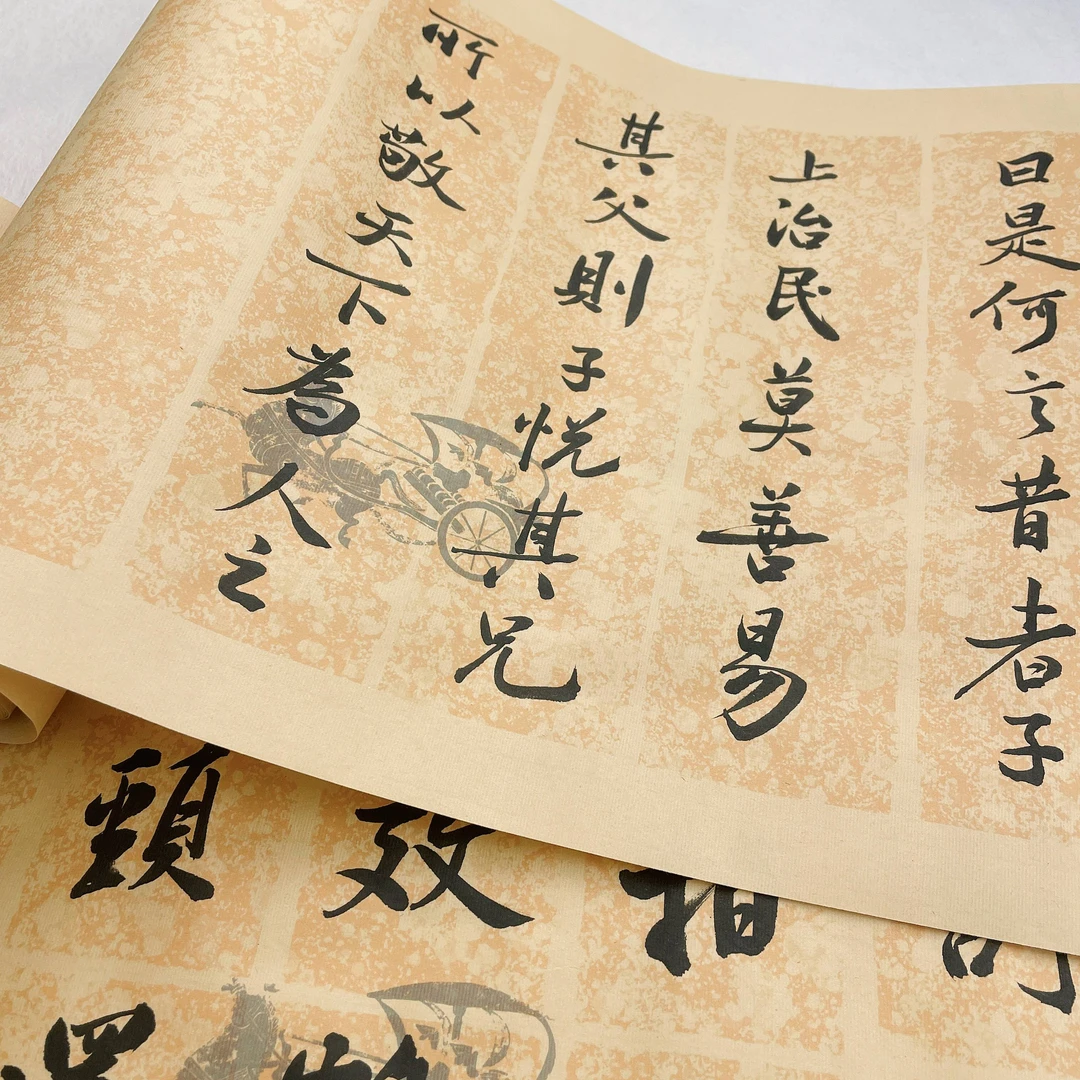 曰是何言昔者子
上治民莫善易
其父則子悦其兄
所以敬天下為人之
指
效
頸